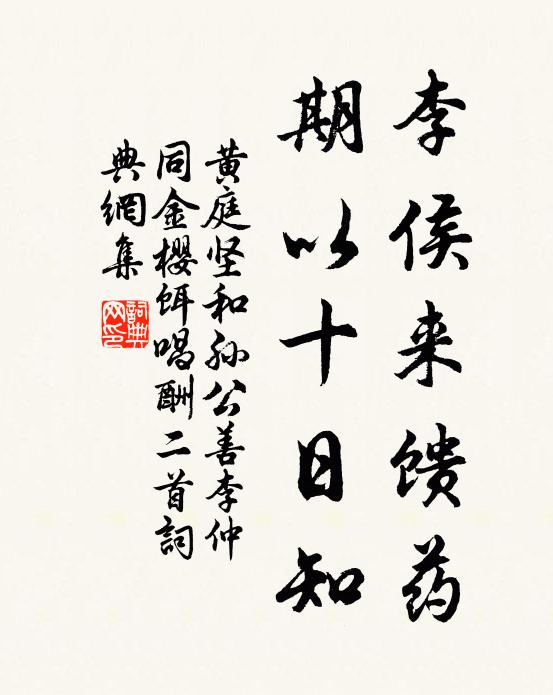 李侯来馈药
期以十日知
黄庭坚和孙公善李仲
同金樱饵唱酬二首詞
典網集
詞典网印